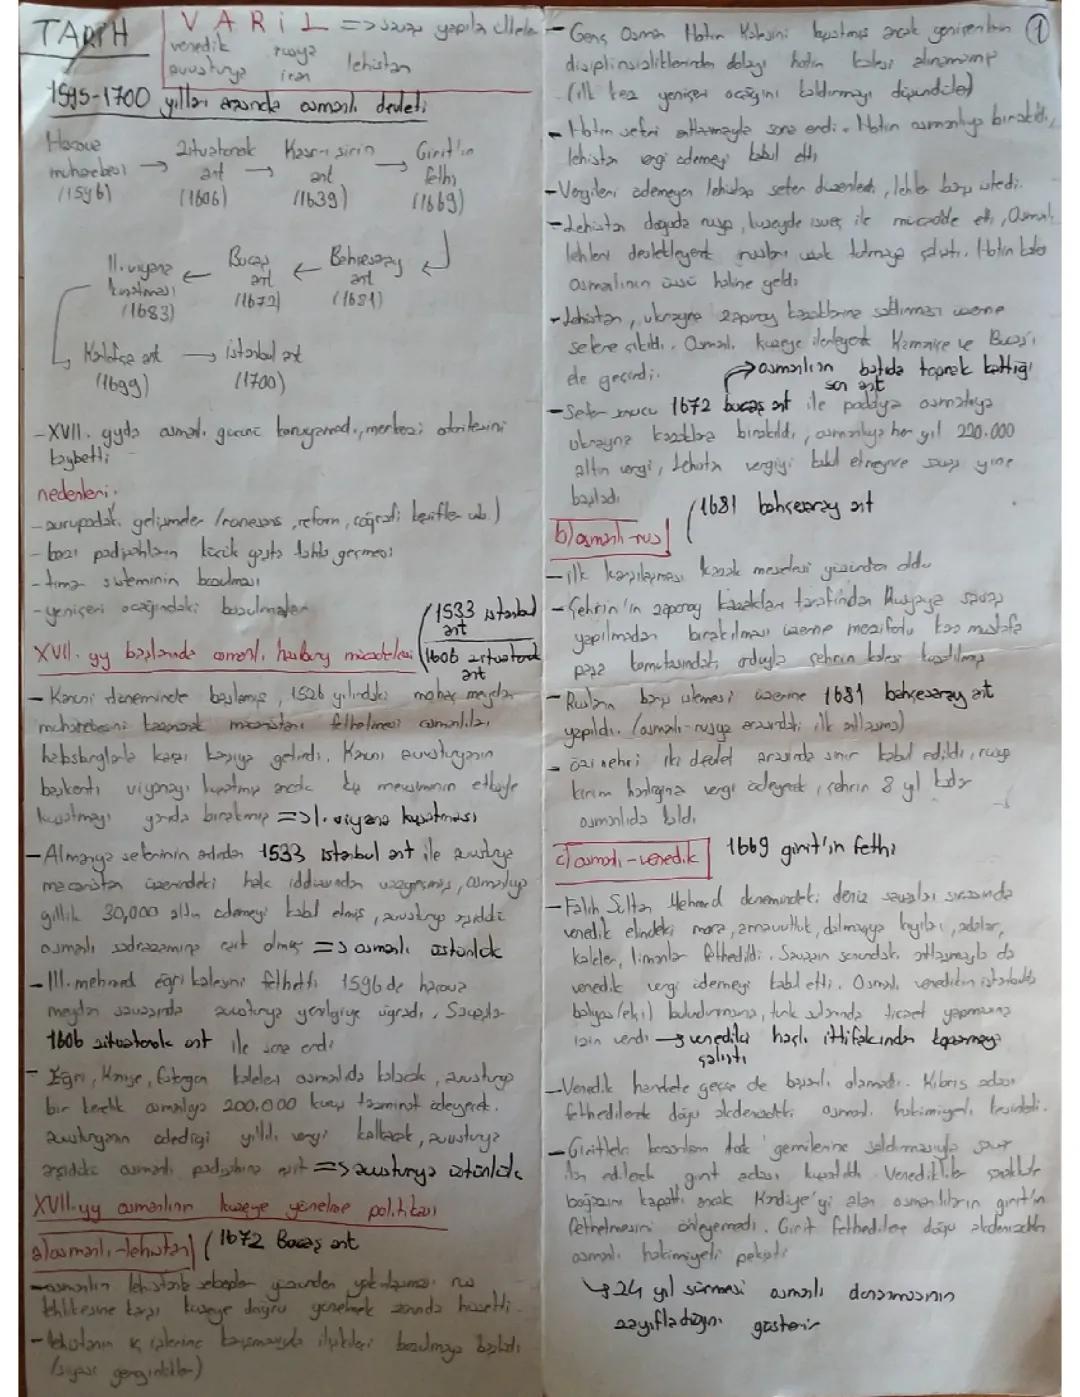 TARİH
VARİL => savaş yapıla ülkeler
venedik rusya lehistan
avusturya iran
1595-1700 yılları arasında osmanlı devleti
Haçova muharebesi (1596) → Zitvatorok ant (1606) → Kasr-ı şirin ant (1639) → Girit'in fethi (1669)
II. viyana kuşatması (1683) ← Bucaş ant (1672) ← Bahçesaray ant (1681)
Karlofça ant (1699) → istanbul ant (1700)
-XVII. yyda osmanlı gücünü koruyamadı, merkezi otoritesini
kaybetti
nedenleri:
-avrupadaki gelişmeler (rönesans, reform, coğrafi keşifler vb.)
-bazı padişahların küçük yaşta tahta geçmesi
-tımar sisteminin bozulması
-yeniçeri ocağındaki bozulmalar
XVII. yy başlarında osmanlı habsburg mücadelesi (1533 istanbul ant
1606 zitvatorok ant
- Kanuni döneminde başlamış, 1526 yılındaki mohaç meydan
muharebesini kazanarak macaristanı fethetmesi osmanlıları
habsburglarla karşı karşıya getirdi. Kanuni avusturyanın
başkenti viyanayı kuşatmış ancak kış mevsiminin etkisiyle
kuşatmayı yarıda bırakmış => I. viyana kuşatması
-Almanya seferinin ardından 1533 istanbul ant ile avusturya
macaristan üzerindeki hak iddiasından vazgeçmiş, osmanlıya
yıllık 30,000 altın ödemeyi kabul etmiş, avusturya arşidükü
osmanlı sadrazamına eşit olmuş => osmanlı üstünlük
-III. mehmed eğri kalesini fethetti 1596 de haçova
meydan savaşında avusturya yenilgiye uğradı. Savaşlar
1606 zitvatorok ant ile sona erdi
- Eğri, Kanije, Estergon kaleleri osmanlıda kalacak, avusturya
bir kerelik osmanlıya 200.000 kuruş tazminat ödeyecek.
avusturyanın ödediği yıllık vergi kalkacak, avusturya
arşidükü osmanlı padişahına eşit => avusturya üstünlük
XVII. yy osmanlının kuzeye yönelme politikası
a) osmanlı-lehistan (1672 Bucaş ant
-osmanlın lehistanla sebepler yüzünden yakınlaşması rus
tehlikesine karşı kuzeye doğru yönelmek zorunda hissetti.
-lehistanın iç işlerine karışmasıyla ilişkileri bozulmaya başladı
(siyasi gerginlikler)
①
- Genç Osman Hotin Kalesini kuşatmış ancak yeniçerilerin
disiplinsizliklerinden dolayı hotin kalesi alınamamış
(ilk kez yeniçeri ocağını kaldırmayı düşündüler)
- Hotin seferi antlaşmayla sona erdi. Hotin osmanlıya bırakıldı,
lehistan vergi ödemeyi kabul etti
-Vergileri ödemeyen lehistan sefer düzenledi, lehler barış istedi.
-Lehistan doğuda rusya, kuzeyde isveç ile mücadele etti, Osmanlı
lehleri destekleyerek rusları uzak tutmaya çalıştı. Hotin kalesi
osmanlının üssü haline geldi
-Lehistan, ukrayna zaporoy kazaklarına saldırması üzerine
sefere çıkıldı. Osmanlı kuzeye ilerleyerek Kamaniçe ve Bucaş'ı
ele geçirdi. → osmanlının batıda toprak kattığı
son ant
-Sefer sonucu 1672 bucaş ant ile podolya osmanlıya
ukrayna kazaklara bırakıldı, osmanlıya her yıl 220.000
altın vergi, Lehistan vergiyi kabul etmeyince savaş yine
başladı
b) osmanlı-rus (1681 bahçesaray ant
-ilk karşılaşması kazak meselesi yüzünden oldu
-Çehrin'in zaporoy kazakları tarafından Rusyaya savaş
yapılmadan bırakılması üzerine merzifonlu kara mustafa
paşa komutasındaki orduyla çehrin kalesi kuşatılmış
- Rusların barış istemesi üzerine 1681 bahçesaray ant
yapıldı. (osmanlı-rusya arasındaki ilk antlaşma)
- özi nehri iki devlet arasında sınır kabul edildi, rusya
kırım hanlığına vergi ödeyecek, çehrin 8 yıl kadar
osmanlıda kaldı.
c) osmanlı-venedik 1669 girit'in fethi
-Fatih Sultan Mehmed dönemindeki deniz savaşları sırasında
venedik elindeki mora, arnavutluk, dalmaçya kıyıları, adalar,
kaleler, limanlar fethedildi. Savaşın sonundaki antlaşmayla da
venedik vergi ödemeyi kabul etti. Osmanlı venediğin istanbulda
balyos (elçi) bulundurmasına, türk sularında ticaret yapmasına
izin verdi → venediği haçlı ittifakından koparmaya
çalıştı
-Venedik harekete geçse de başarılı olamadı. Kıbrıs adası
fethedilerek doğu akdenizdeki osmanlı hakimiyeti kesinleşti.
-Giritteki korsanların türk gemilerine saldırmasıyla savaş
ilan edilerek girit adası kuşatıldı. Venedikliler çanakkale
boğazını kapattı ancak Kandiye'yi alan osmanlıların girit'in
fethetmesini önleyemedi. Girit fethedilince doğu akdenizdeki
osmanlı hakimiyeti pekişti
↳ 24 yıl sürmesi osmanlı donanmasının
zayıfladığını gösterir